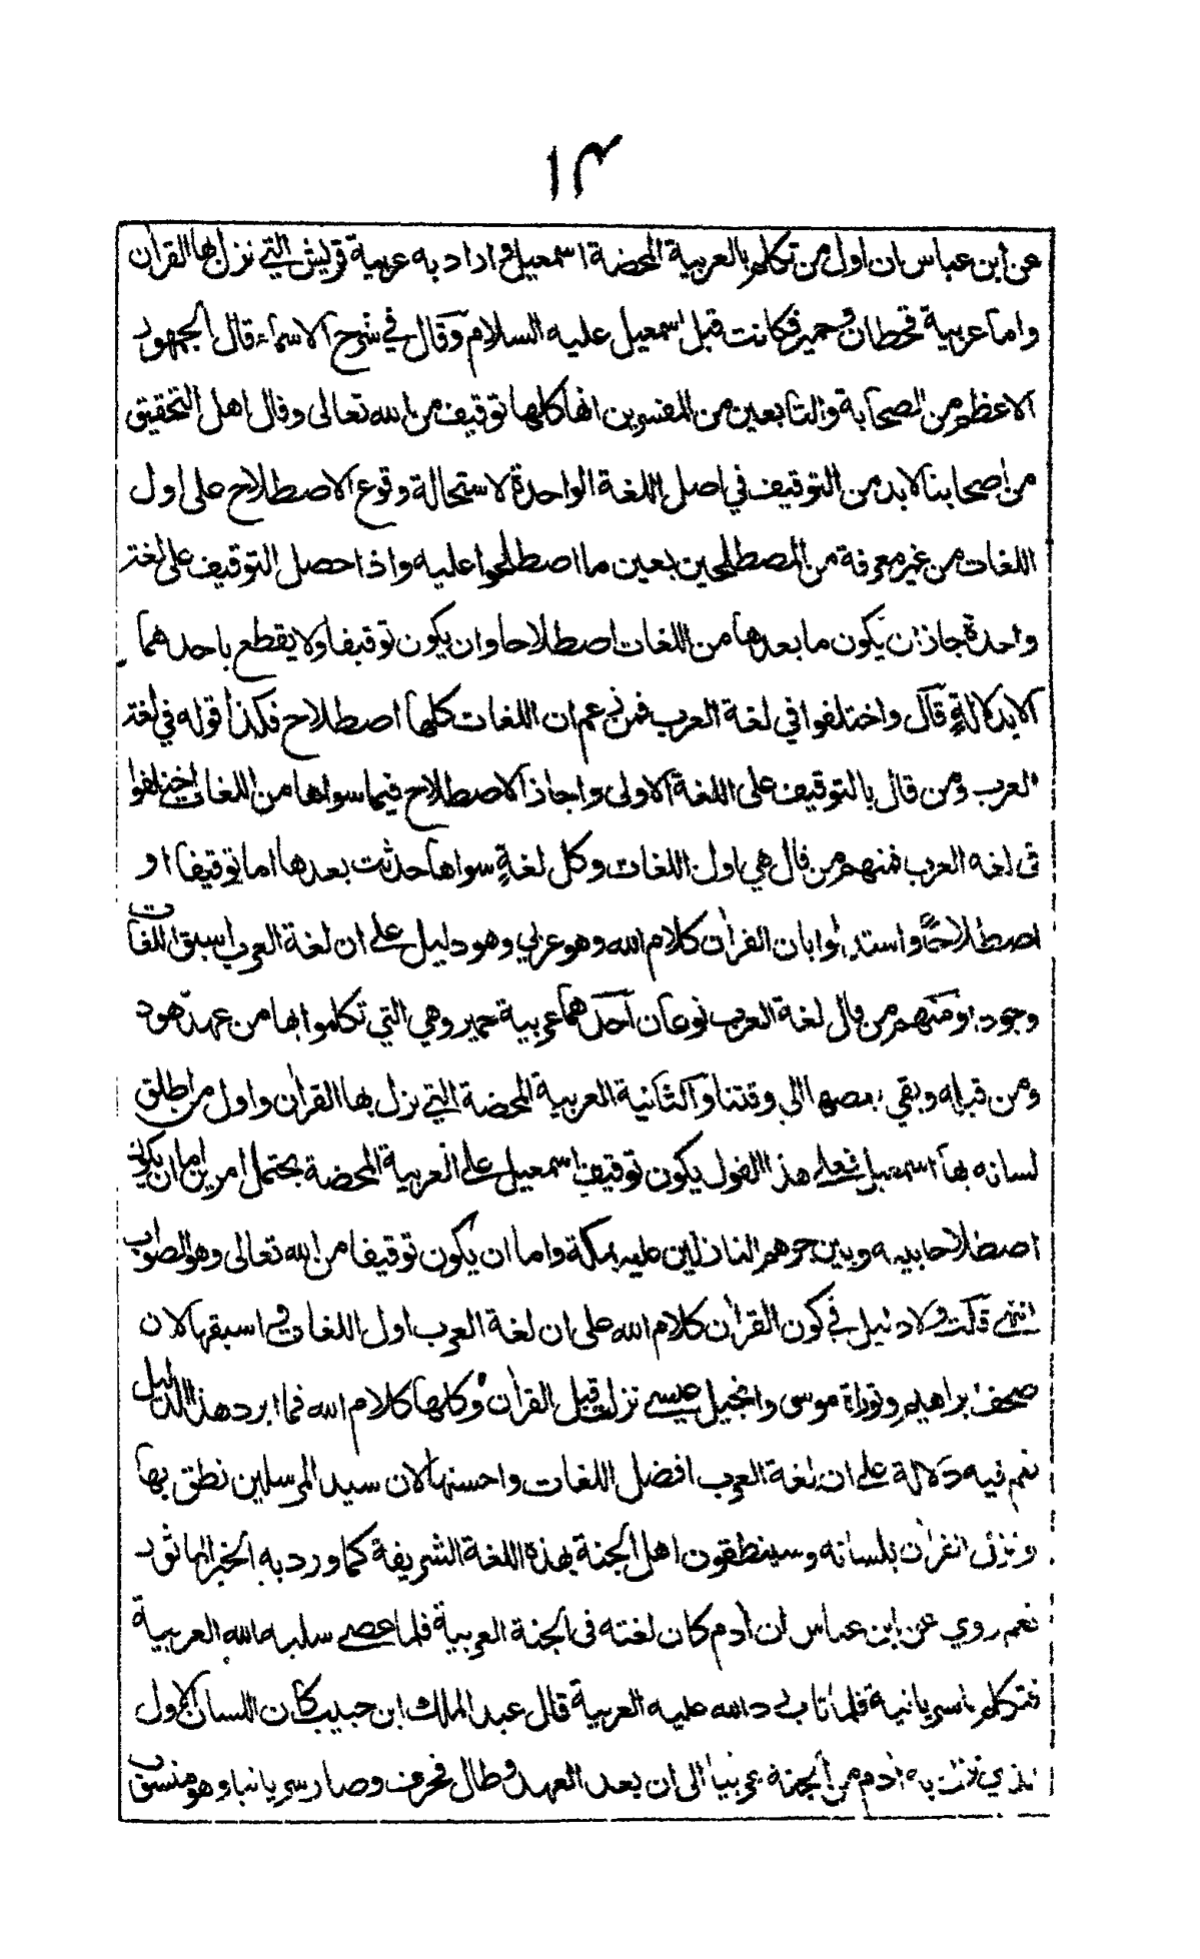 ١٣
عن ابن عباس ان اول من تكلم بالعربية المحضة اسمعيل واراد به عربية قريش التي نزل بها القران
واما عربية قحطان وحمير فكانت قبل اسمعيل عليه السلام وقال في شرح الاسماء قال الجمهور
الاعظم من الصحابة والتابعين من المفسرين انها كلها توقيف من الله تعالى وقال اهل التحقيق
من اصحابنا لابد من التوقيف في اصل اللغة الواحدة لاستحالة وقوع الاصطلاح على اول
اللغات من غير معرفة من المصطلحين بعين ما اصطلحوا عليه واذا حصل التوقيف على لغة
واحدة جاز ان يكون ما بعدها من اللغات اصطلاحا وان يكون توقيفا ولا يقطع باحدهما
الا بدلالةٍ قال واختلفوا في لغة العرب فمن زعم ان اللغات كلها اصطلاح فكذا قوله في لغة
العرب ومن قال بالتوقيف على اللغة الاولى واجاز الاصطلاح فيما سواها من اللغات اختلفوا
في لغه العرب فمنهم من قال هي اول اللغات وكل لغةٍ سواها حدثت بعدها اما توقيفا او
اصطلاحًا واستدلوا بان القران كلام الله وهو عربي وهو دليل على ان لغة العرب اسبق اللغات
وجودا ومنهم من قال لغة العرب نوعان احدهما عربية حمير وهي التي تكلموا بها من عهد هود
ومن قبله وبقي بعضها الى وقتنا والثانية العربية المحضة التي نزل بها القران واول من اطلق
لسانه بها اسمعيل فعلى هذا القول يكون توقيف اسمعيل على العربية المحضة يحتمل امرين اما ان يكون
اصطلاحا بينه وبين جرهم النازلين عليه بمكة واما ان يكون توقيفا من الله تعالى وهو الصواب
انتهى قلت ولا دليل في كون القران كلام الله على ان لغة العرب اول اللغات واسبقها لان
صحف ابراهيم وتوراة موسى وانجيل عيسى نزلت قبل القران وكلها كلام الله فما ابرد هذا الدليل
نعم فيه دلالة على ان لغة العرب افضل اللغات واحسنها لان سيد المرسلين نطق بها
ونزل القران بلسانه وسينطقون اهل الجنة بهذه اللغة الشريفة كما ورد به الخبر الماثور
نعم روي عن ابن عباس ان ادم كان لغته في الجنة العربية فلما عصى سلبه الله العربية
فتكلم بالسريانية فلما تاب رد الله عليه العربية قال عبد الملك ابن حبيب كان اللسان الاول
الذي نزل به ادم من الجنة عربيا الى ان بعد العهد وطال فحرف وصار سريانيا وهو منسوب